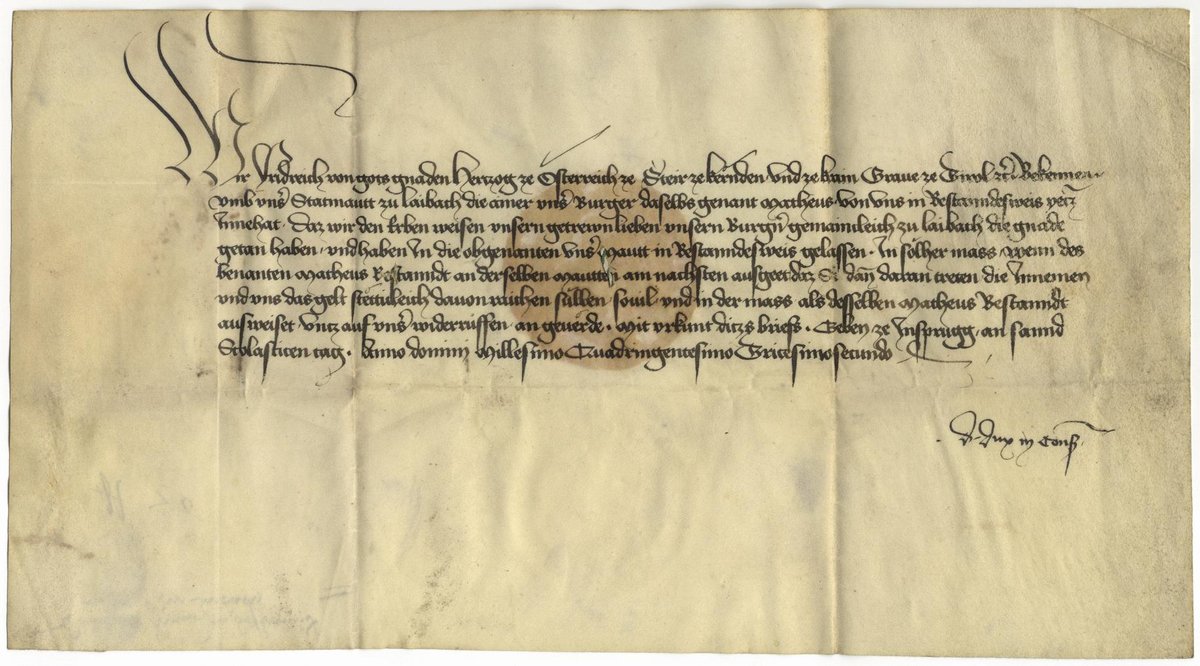 Wir Fridreich von gots gnaden Hertzog ze Österreich ze Steir ze kernden Vnd ze krain Graue ze Tirol etc Bekennen
vmb vnser Statmautt zu laibach die ainer vnser Burger daselbs genant Matheus von vns in Bestanndesweis yetz
Innehat. Daz wir den Erben weisen vnsern getrewn lieben vnsern Burgern gemainnleich zu laibach die gnade
getan haben. vnd haben In die obgenanten vnser Mautt in Bestanndesweis gelassen. In solher mass. wenn des
benanten Matheus Bestanndt an derselben Mautt am nachsten ausgeet daz Si dann daran treten die Innemen
vnd vns das gelt davon raichen süllen. souil vnd in der mass als desselben Matheus Bestanndt
ausweiset Vntz auf vnser widerrüffen. an geuerde. Mit vrkunt ditzs briefs. Geben ze Insprugg. an sannd
Scolasticen tag. Anno domini Millesimo Quadringentesimo Tricesimosecundo
d. dux in Cons